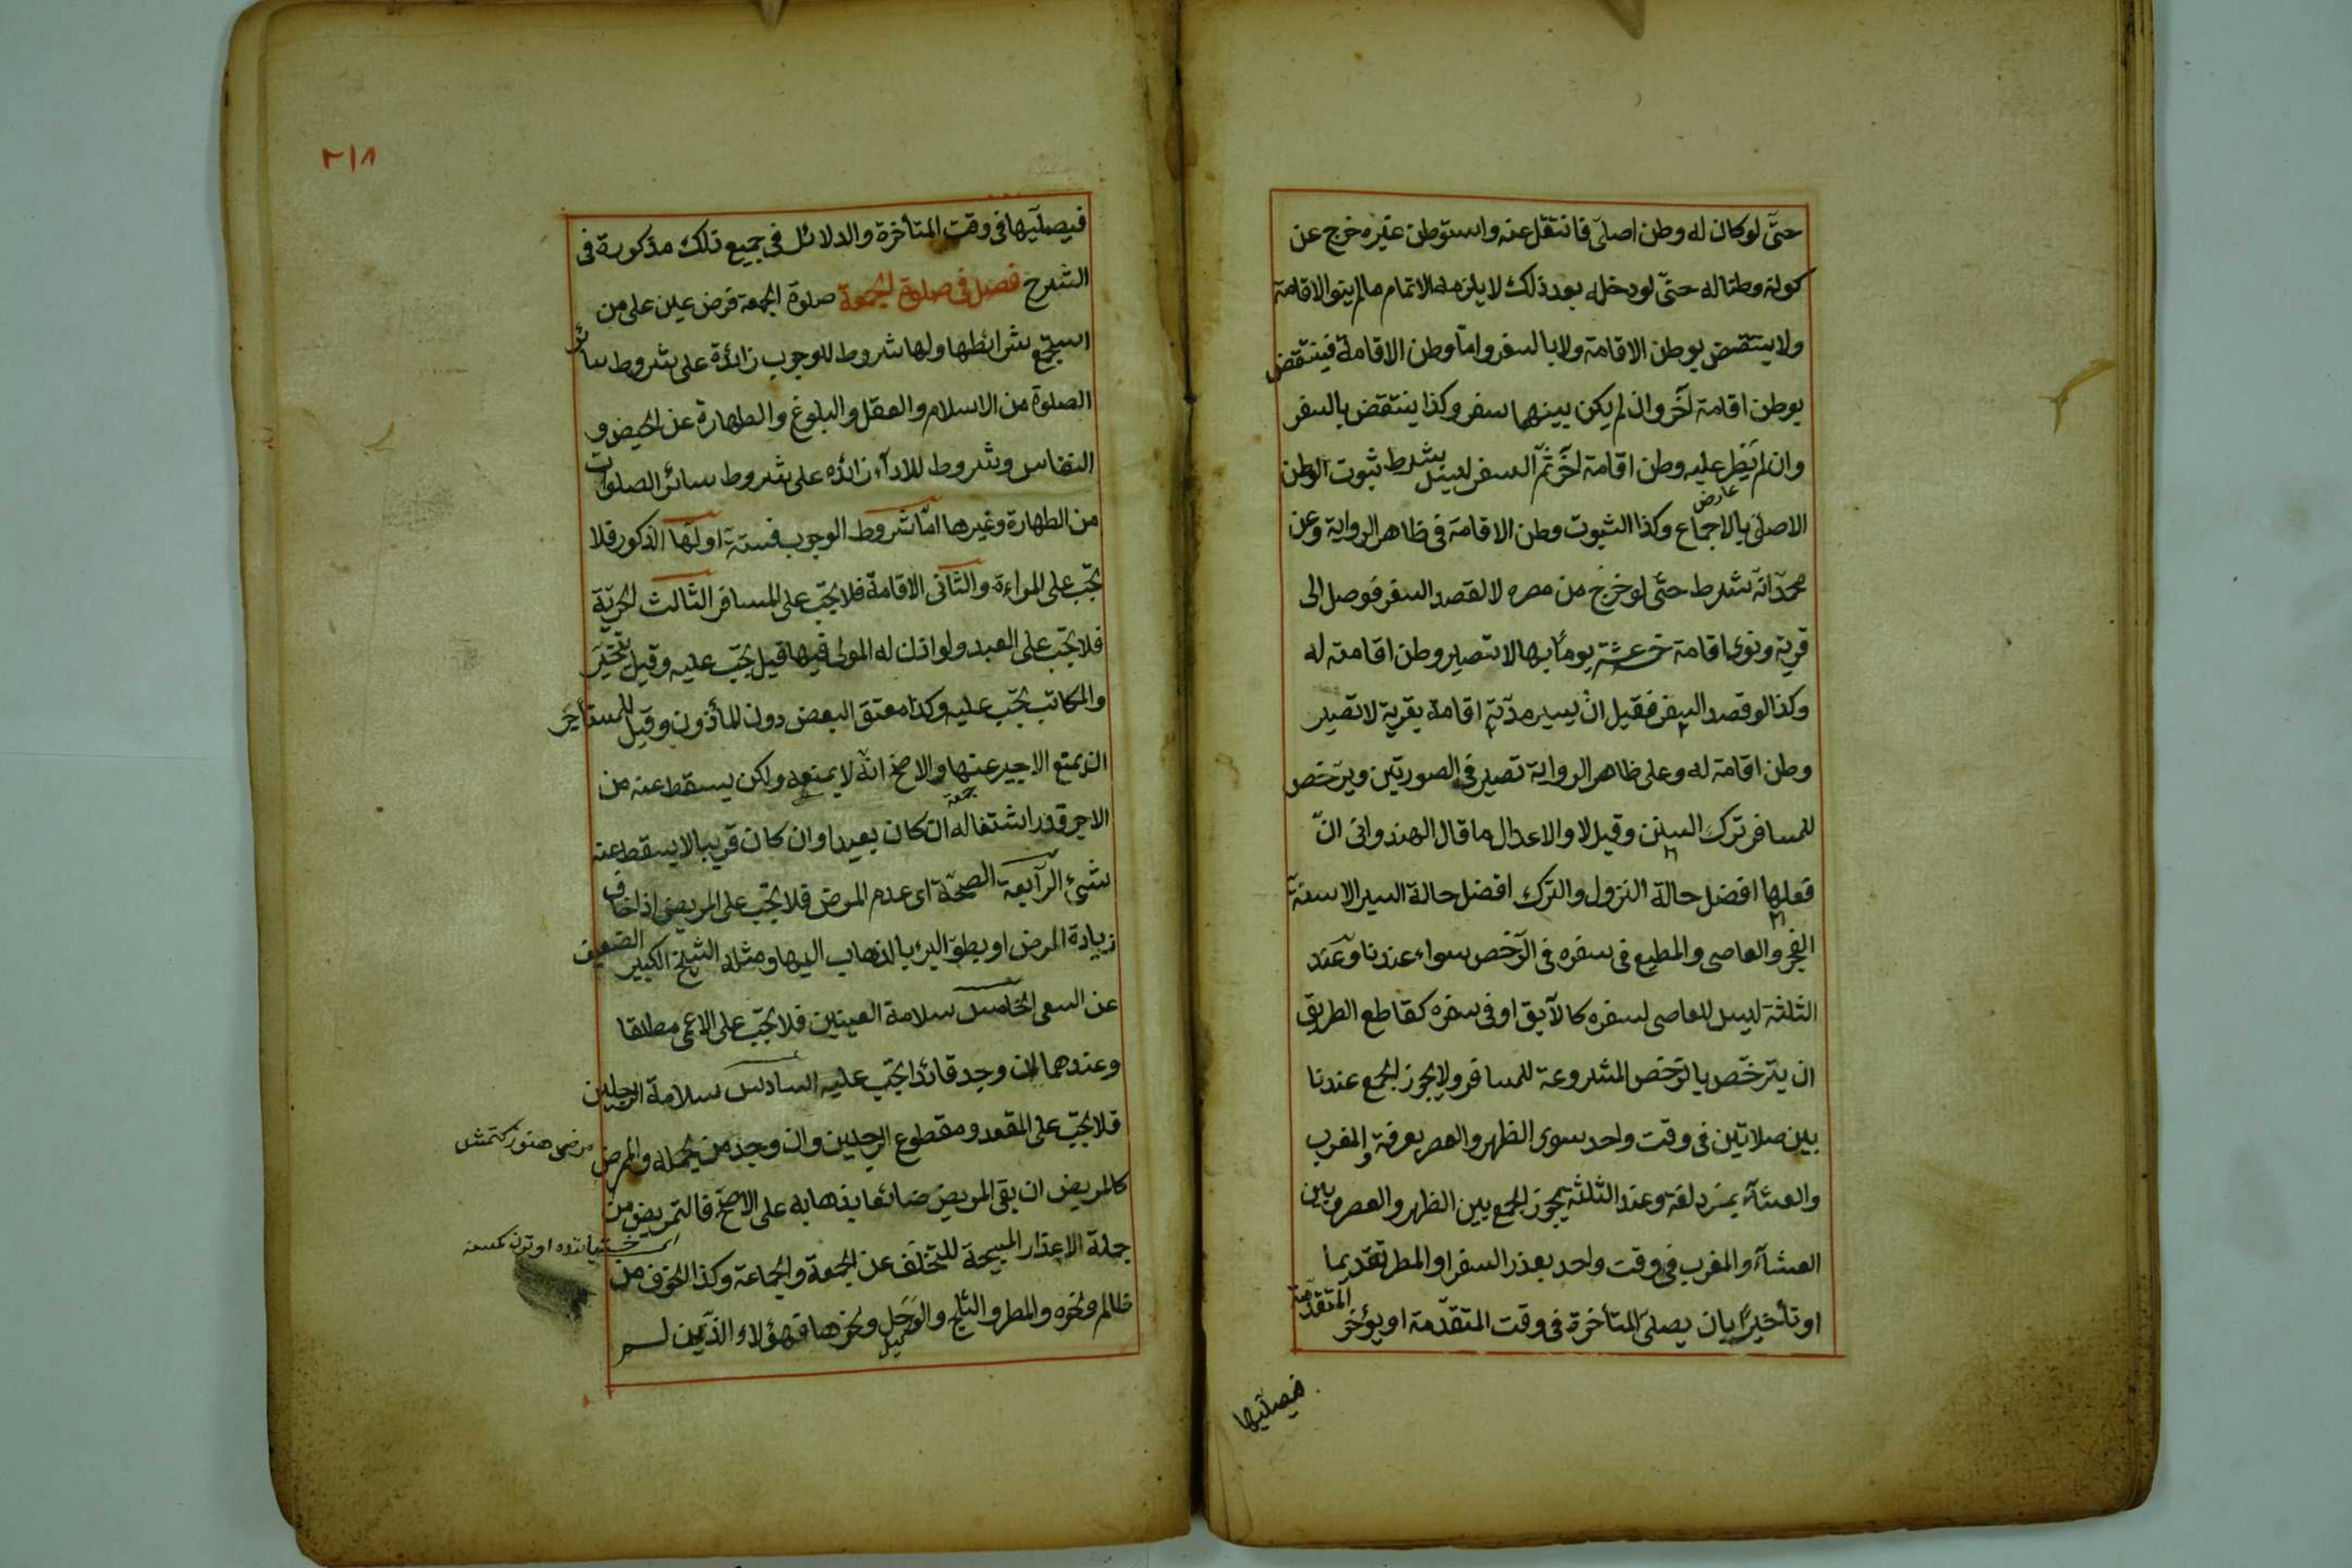 حتّى لو كان له وطن اصلى فانتقل عنه واستوطن غيره خرج عن
كونه وطنا له حتّى لو دخله بعد ذلك لا يلزمه الاتمام مالم ينو الاقامة
ولا ينتقض بوطن الاقامة ولا بالسفر وامّا وطن الاقامة فينتقض
بوطن اقامة آخر وان لم يكن بينهما سفر وكذا ينتقض بالسفر
وان لم يطر عليه وطن اقامة آخر ثمّ السفر ليس بشرط ثبوت الوطن
الاصلى بالاجماع وكذا الثبوت وطن الاقامة فى ظاهر الرواية وعن
عارض
محمّد انّه شرط حتّى لو خرج من مصره لا لقصد السفر فوصل الى
قرية ونوى اقامة خمسة عشر يومًا بها لا تصير وطن اقامته له
وكذا لو قصد السفر فقيل ان يسير مدّته اقامة بقرية لا تصير
وطن اقامة له وعلى ظاهر الرواية تصير فى الصورتين ويرخص
للمسافر ترك السنن وقيل لا والاعدال ما قال الهندوانى انّ
فعلها افضل حالة النزول والترك افضل حالة السير الا سنة
الفجر والعاصى والمطيع فى سفره فى الرّخص سواء عندنا وعند
الثلثة ليس للعاصى لسفره كالآبق او فى سفره كقاطع الطريق
ان يترخّص بالرخّص المشروعة للمسافر ولا يجوز الجمع عندنا
بين صلاتين فى وقت واحد سوى الظهر والعصر بعرفة والمغرب
والعشاء بمزدلفة وعند الثلثة يجوز الجمع بين الظهر والعصر وبين
العشاء والمغرب فى وقت واحد بعذر السفر او المطر تقديما
او تأخيرًا بان يصلى المتأخرة فى وقت المتقدّمة او يؤخر المتقدّمة
فيصلّيها
٢١٨
فيصلّيها فى وقت المتأخرة والدلائل فى جميع ذلك مذكورة فى
الشرح فصل فى صلوة الجمعة صلوة الجمعة فرض عين على من
استجمع شرائطها ولها شروط للوجوب زائدة على شروط سائر
الصلوة من الاسلام والعقل والبلوغ والطهارة عن الحيض و
النفاس وشروط للاداء زائده على شروط سائر الصلوات
من الطهارة وغيرها امّا شروط الوجوب فستة اولها الذكور فلا
تجب على المراءة والثانى الاقامة فلا تجب على المسافر الثالث الحريّة
فلا تجب على العبد ولو اذن له المولى فيها قيل تجب عليه وقيل يتخيّر
والمكاتب تجب عليه وكذا معتق البعض دون المأذون وقيل للمستأجر
ان يمنع الاجير عنها والاصحّ انّه لا يمنعه ولكن يسقط عنه من
الاجر قدر اشتغاله ان كان بعيدا وان كان قريبا لا يسقط عنه
جمعة
شئ الرابعة الصحّة اى عدم المرض فلا تجب على المريض اذا خاف
زيادة المرض او بطؤ البرء بالذهاب اليها ومثله الشيخ الكبير الضعيف
عن السعى الخامس سلامة العينين فلا تجب على الاعمى مطلقا
وعندهما ان وجد قائدا تجب عليه السادس سلامة الرجلين
فلا تجب على المقعد ومقطوع الرجلين وان وجد من يحمله والممرض
كالمريض ان بقى المريض ضائعا بذهابه على الاصحّ فالتمريض من
جملة الاعذار المبيحة للتخلّف عن الجمعة والجماعة وكذا الخوف من
ظالم ونحوه والمطر والثلج والوحل ونحوها فهؤلاء الذين لم